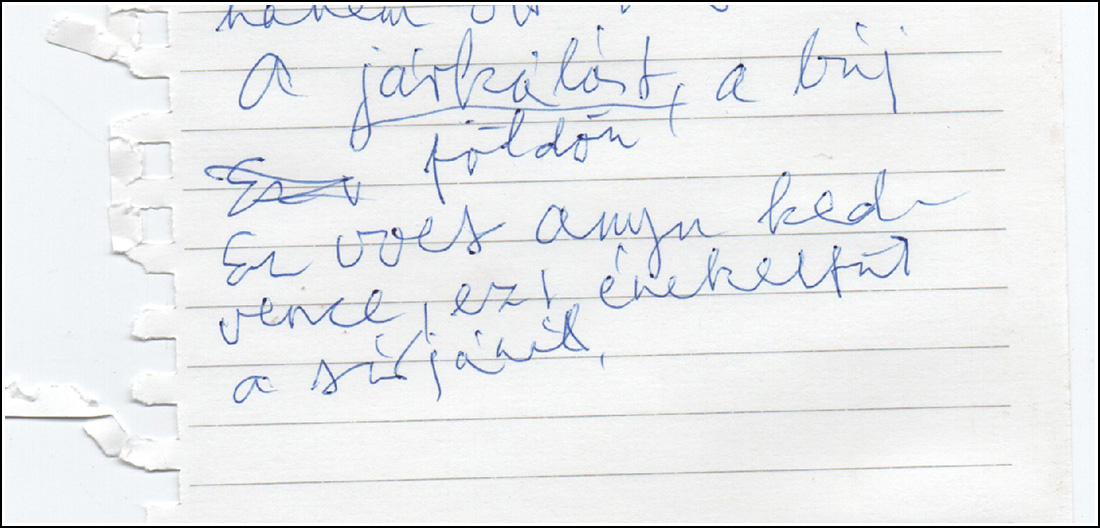 hanem
a járkálást, a búj
földön
Ez volt anyu ked-
vence, ezt énekeltük
a sírjánál,